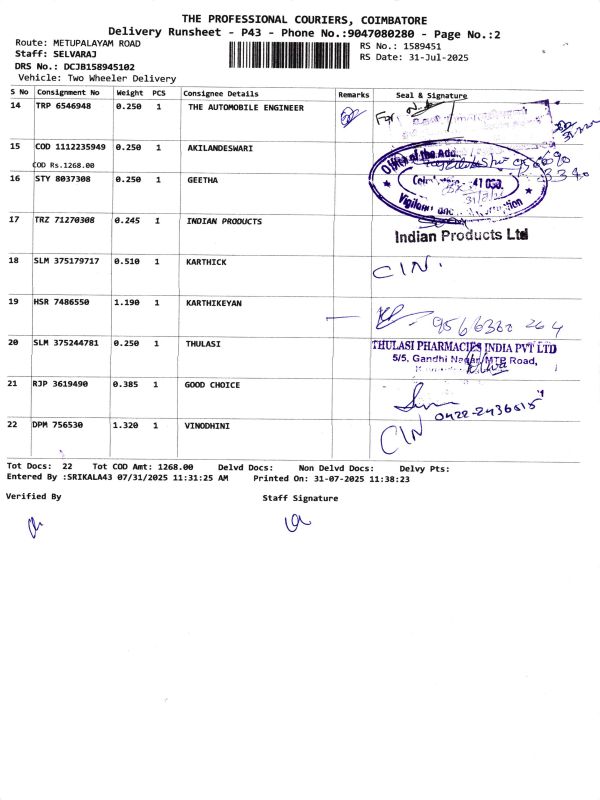 THE PROFESSIONAL COURIERS, COIMBATORE
Delivery Runsheet - P43 - Phone No.:9047080280 - Page No.:2
Route: METUPALAYAM ROAD
RS No.: 1589451
Staff: SELVARAJ
RS Date: 31-Jul-2025
DRS No.: DCJB158945102
Vehicle: Two Wheeler Delivery
S No Consignment No Weight PCS Consignee Details Remarks Seal & Signature
14 TRP 6546948 0.250 1 THE AUTOMOBILE ENGINEER
15 COD 1112235949 0.250 1 AKILANDESWARI
COD Rs.1268.00
16 STY 8037308 0.250 1 GEETHA
17 TRZ 71270308 0.245 1 INDIAN PRODUCTS
Indian Products Ltd
18 SLM 375179717 0.510 1 KARTHICK CIN.
19 HSR 7486550 1.190 1 KARTHIKEYAN
20 SLM 375244781 0.250 1 THULASI THULASI PHARMACIES INDIA PVT LTD
5/5, Gandhi Nagar, MTP Road,
21 RJP 3619490 0.385 1 GOOD CHOICE
0422-2436015
22 DPM 756530 1.320 1 VINODHINI CIN
Tot Docs: 22 Tot COD Amt: 1268.00 Delvd Docs: Non Delvd Docs: Delvy Pts:
Entered By :SRIKALA43 07/31/2025 11:31:25 AM Printed On: 31-07-2025 11:38:23
Verified By Staff Signature